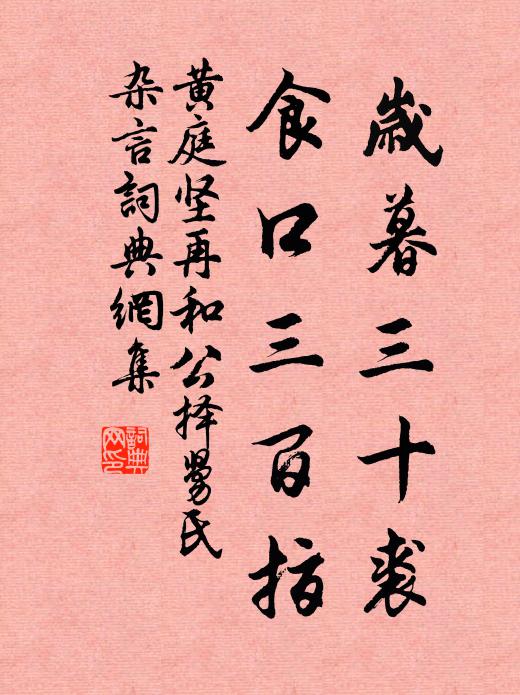 歲暮三十裘
食口三百指
黄庭坚再和公择舅氏
杂言詞典網集
詞典
网印